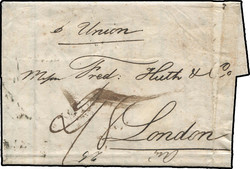 p Union
Messrs Fred. Huth & Co
London